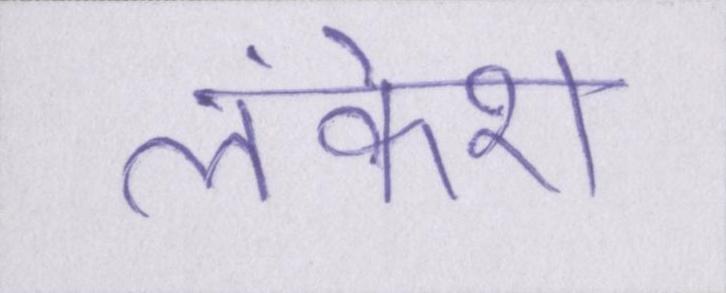 लंकेश